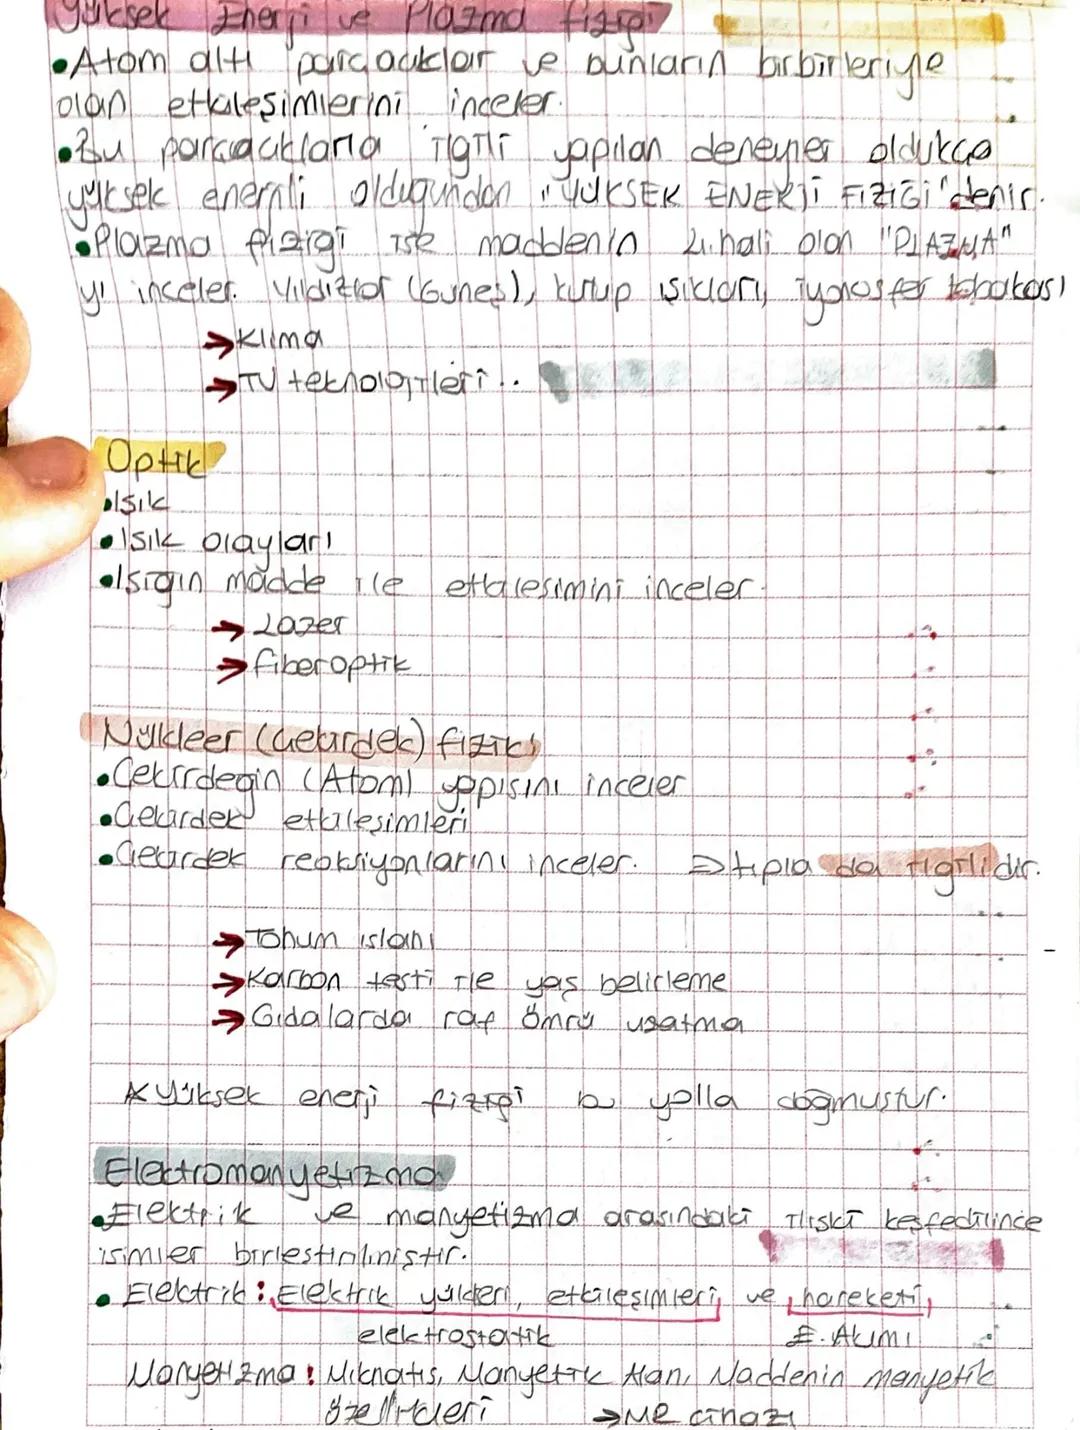 Yüksek Enerji ve Plazma fiziği
•Atom altı parçacıklar ve bunların birbirleriyle
olan etkileşimlerini inceler.
•Bu parçacıklarla ilgili yapılan deneyler oldukça
yüksek enerjili olduğundan "YÜKSEK ENERJİ FİZİĞİ" denir.
•Plazma fiziği ise maddenin 4.hali olan "PLAZMA"
yı inceler. Yıldızlar (Güneş), kutup ışıkları, iyonosfer tabakası
→Klima
→TV teknolojileri..
Optik
•Işık
•Işık olayları
•Işığın madde ile etkileşimini inceler.
→Lazer
→fiberoptik
Nükleer (Çekirdek) fizik
•Çekirdeğin (Atom) yapısını inceler
•Çekirdek etkileşimleri
•Çekirdek reaksiyonlarını inceler. ⇒tıpla da ilgilidir.
→Tohum ıslahı
→Karbon testi ile yaş belirleme
→Gıdalarda raf ömrü uzatma
*Yüksek enerji fiziği bu yolla doğmuştur.
Elektromanyetizma
•Elektrik ve manyetizma arasındaki ilişki keşfedilince
isimler birleştirilmiştir.
•Elektrik: Elektrik yükleri, etkileşimleri, ve hareketi,
elektrostatik E.Akımı
Manyetizma: Mıknatıs, Manyetik Alan, Maddenin manyetik
özellikleri →MR cihazı